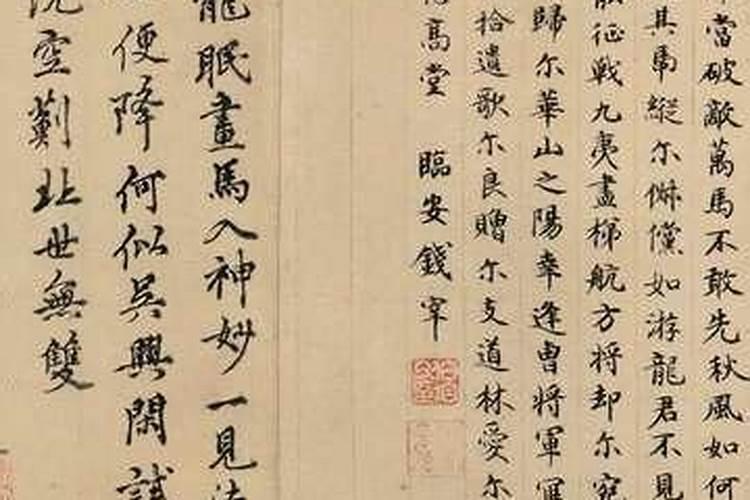 當破敵萬馬不敢先秋風如何
其馬縱尓俶儻如游龍君不見
征戰九夷盡梯航方將却尓窮
歸尓華山之陽幸逢曹將軍寫
拾遺歌尓良贈尓支道林愛尓
高堂 臨安錢宰
龍眠畫馬入神妙一見
便降何似吳興閑試
空薊北世無雙